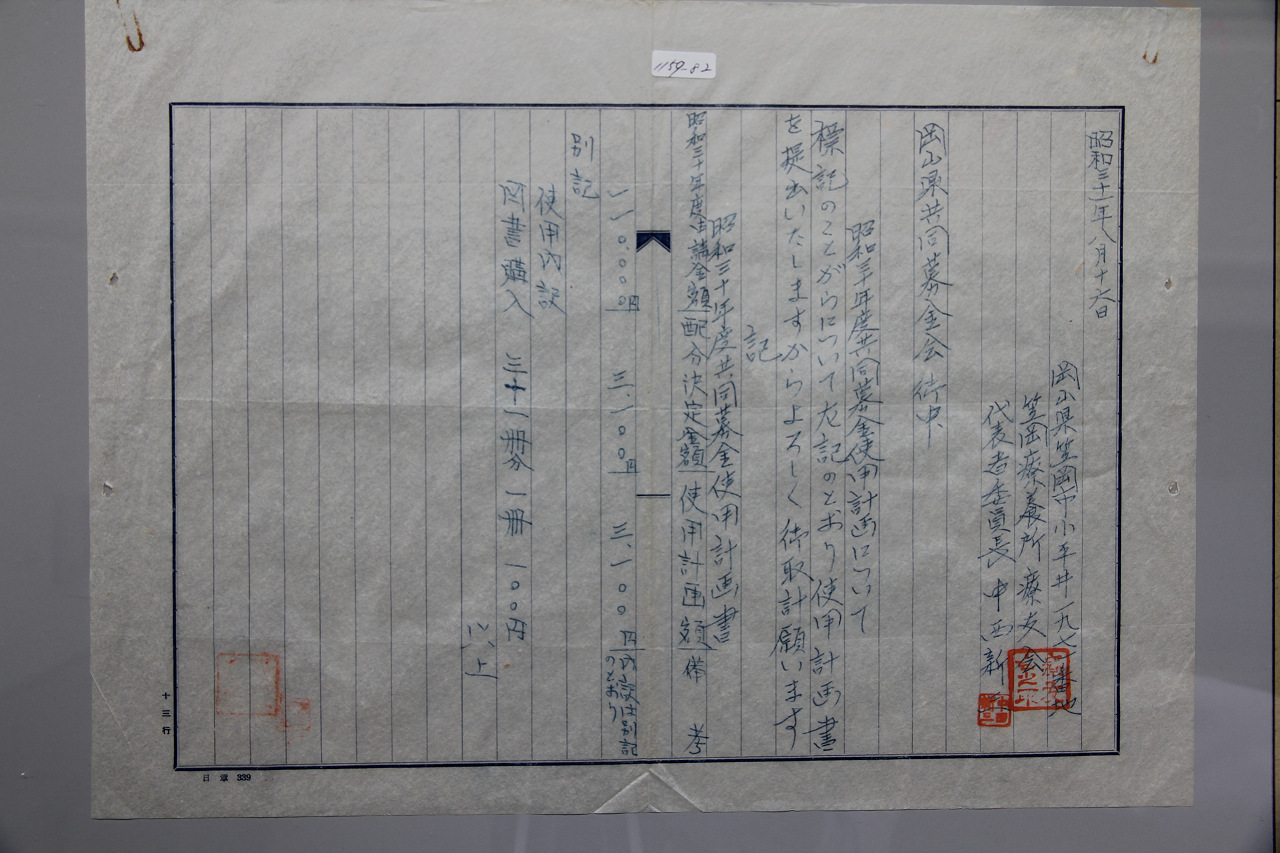 1159-82
昭和三十一年八月十六日
岡山県笠岡市小平井一九七一番地
笠岡療養所療友会
代表者委員長 中西新
岡山県共同募金会 御中
昭和三十年度共同募金使用計画について
標記のことがらについて左記のとおり使用計画書
を提出いたしますからよろしく御取計願います
記
昭和三十年度共同募金使用計画書
昭和三十年度申請金額 配分決定金額 使用計画額 備考
一一〇、〇〇〇円 三、一〇〇円 三、一〇〇円 内訳は別記のとおり
別記
使用内訳
図書購入 三十一冊分 一冊 一〇〇円
以上
十三行
日章 339